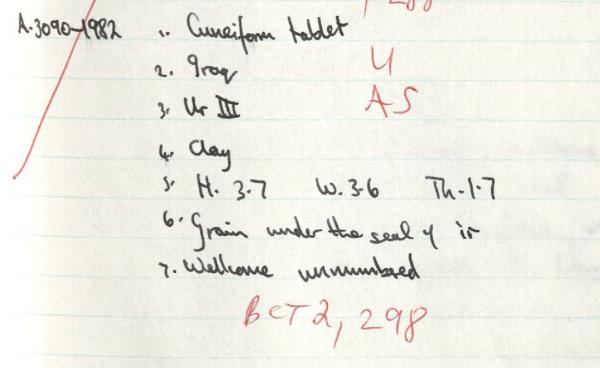 A.3090-1982 1. Cuneiform tablet
2. Iraq U
3. Ur III AS
4. Clay
5. H. 3.7 W. 3.6 Th. 1.7
6. Grain under the seal of
7. Wellcome unnumbered
BCT 2, 298